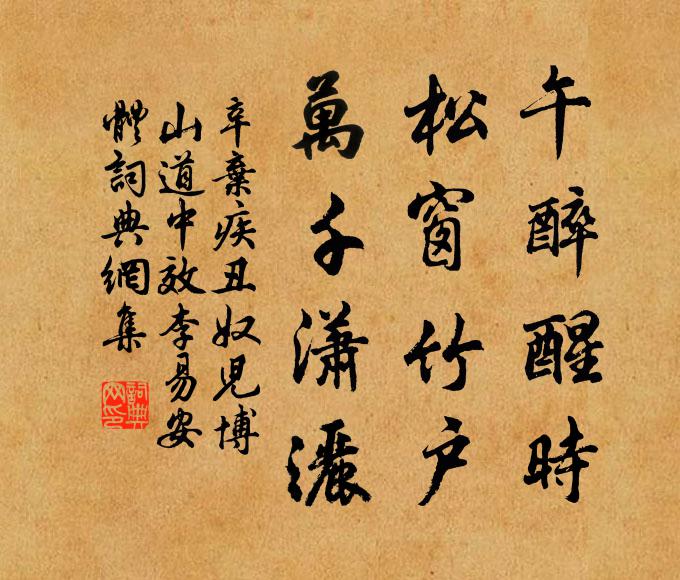 午醉醒時
松窗竹户
萬千瀟灑
辛棄疾丑奴兒博
山道中效李易安
體詞典網集
詞典
网印